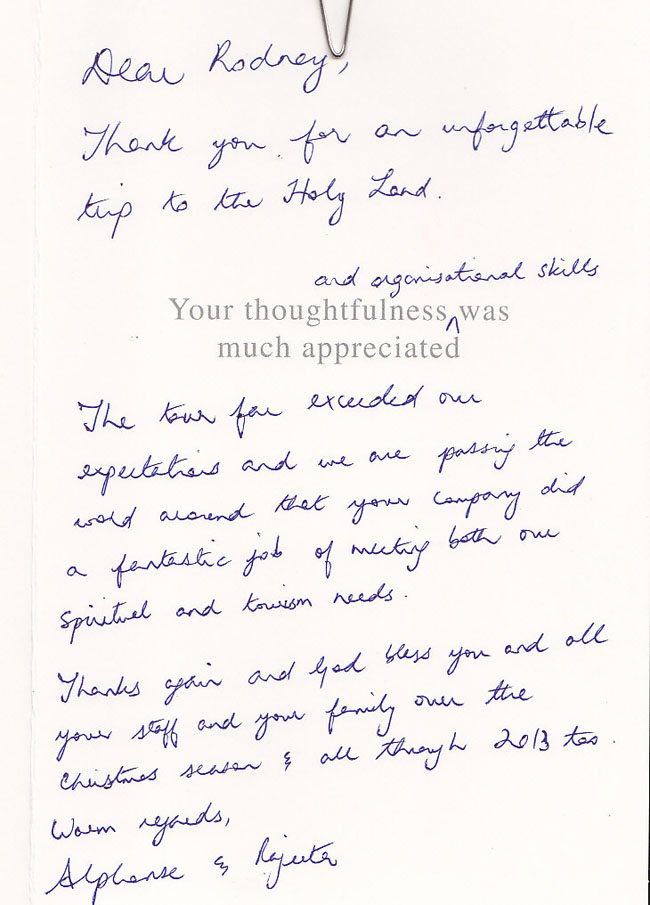 Dear Rodney,
Thank you for an unforgettable
trip to the Holy Land.
and organisational skills
Your thoughtfulness ^ was
much appreciated
The tour far exceeded our
expectations and we are passing the
word around that your company did
a fantastic job of meeting both our
spiritual and tourism needs.
Thanks again and God bless you and all
your staff and your family over the
Christmas season & all through 2013 too.
Warm regards,
Alphonse & Rajeeta